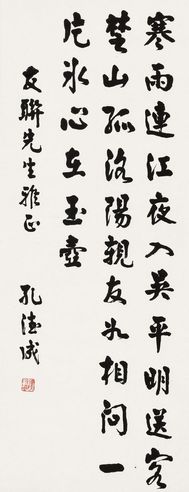 寒雨連江夜入吳平明送客
楚山孤洛陽親友如相問一
片冰心在玉壺
友聯先生雅正
孔德成